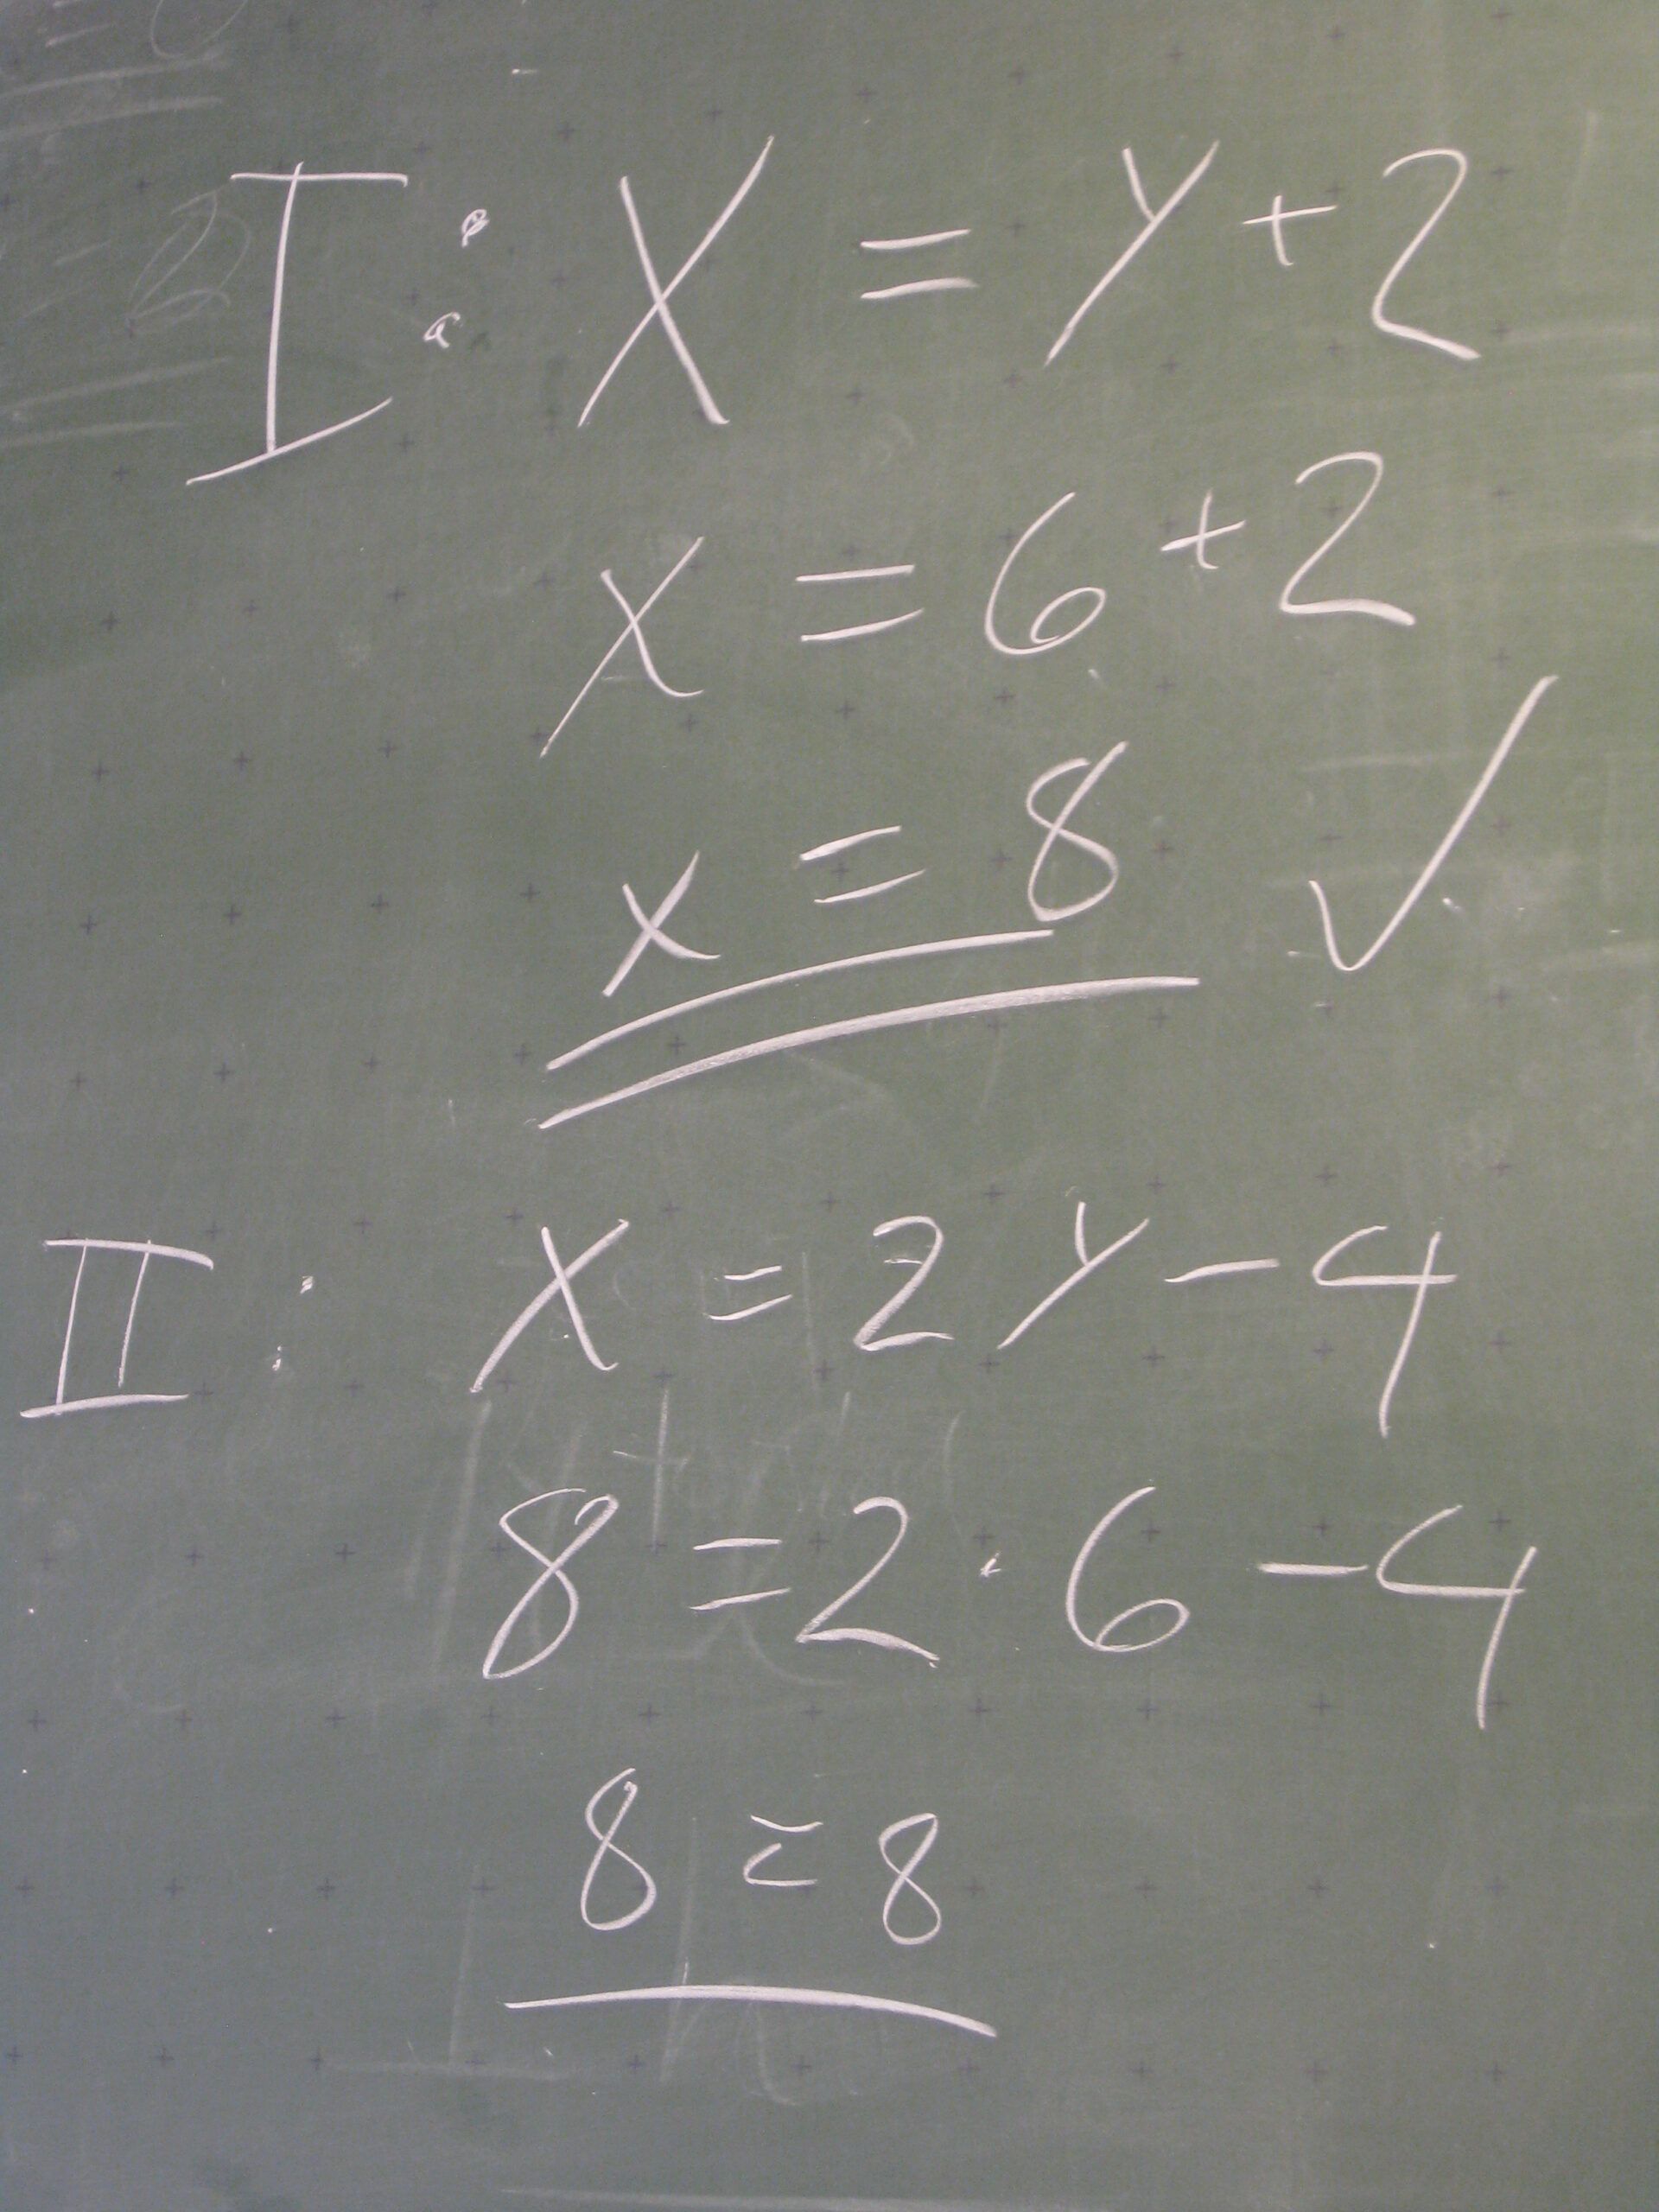 I: X = y + 2
x = 6 + 2
x = 8 ✓
II: x = 2y - 4
8 = 2 · 6 - 4
8 = 8